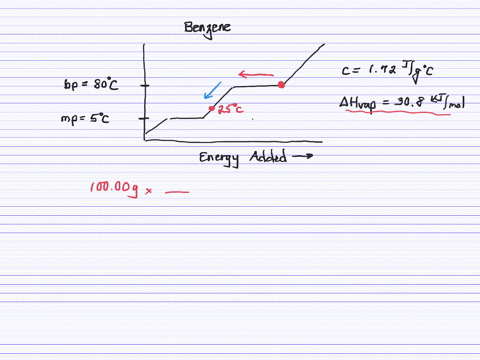 Benzene
bp = 80°C
mp = 5°C
25°C
Energy Added →
c = 1.72 J/g°C
ΔHvap = 30.8 kJ/mol
100.00g × __